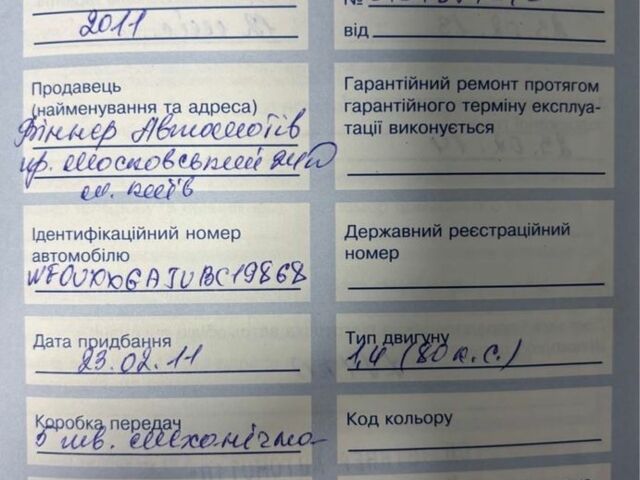 2011
№
від
Продавець
(найменування та адреса)
Віннер Автомотів
пр. Московський 24
м. Київ
Гарантійний ремонт протягом
гарантійного терміну експлуа-
тації виконується
Ідентифікаційний номер
автомобілю
WF0UXXGAJUBC19868
Державний реєстраційний
номер
Дата придбання
23.02.11
Тип двигуну
1,4 (80 к.с.)
Коробка передач
5 шв. механічна
Код кольору